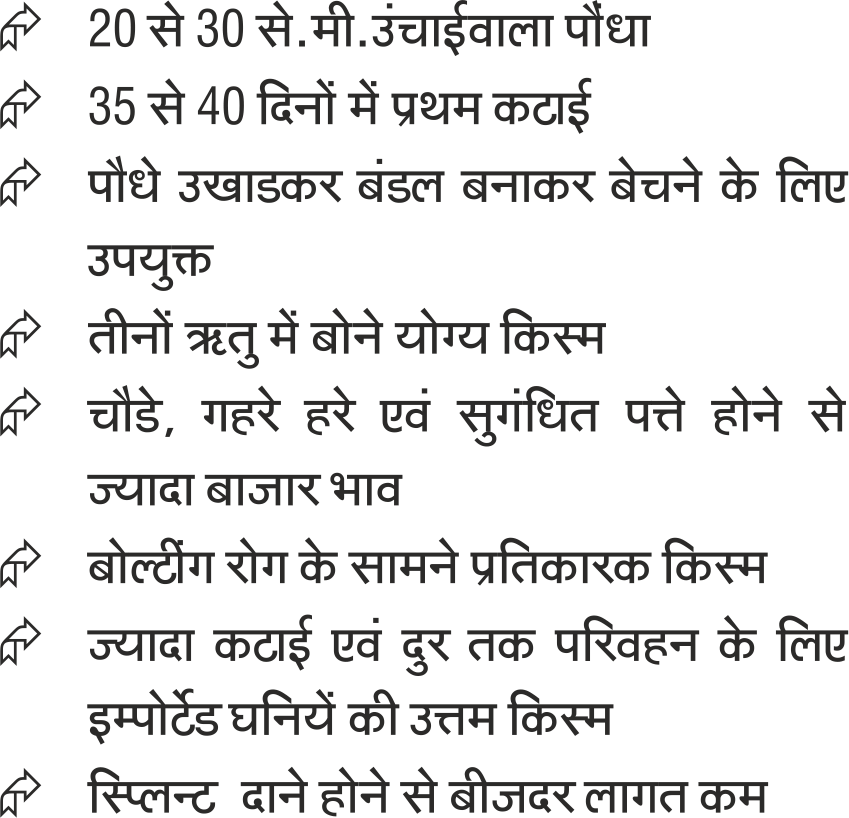 20 से 30 से.मी.उंचाईवाला पौंधा
35 से 40 दिनों में प्रथम कटाई
पौधे उखाडकर बंडल बनाकर बेचने के लिए
उपयुक्त
तीनों ऋतु में बोने योग्य किस्म
चौडे, गहरे हरे एवं सुगंधित पत्ते होने से
ज्यादा बाजार भाव
बोल्टींग रोग के सामने प्रतिकारक किस्म
ज्यादा कटाई एवं दुर तक परिवहन के लिए
इम्पोर्टेड घनियें की उत्तम किस्म
स्प्लिन्ट दाने होने से बीजदर लागत कम